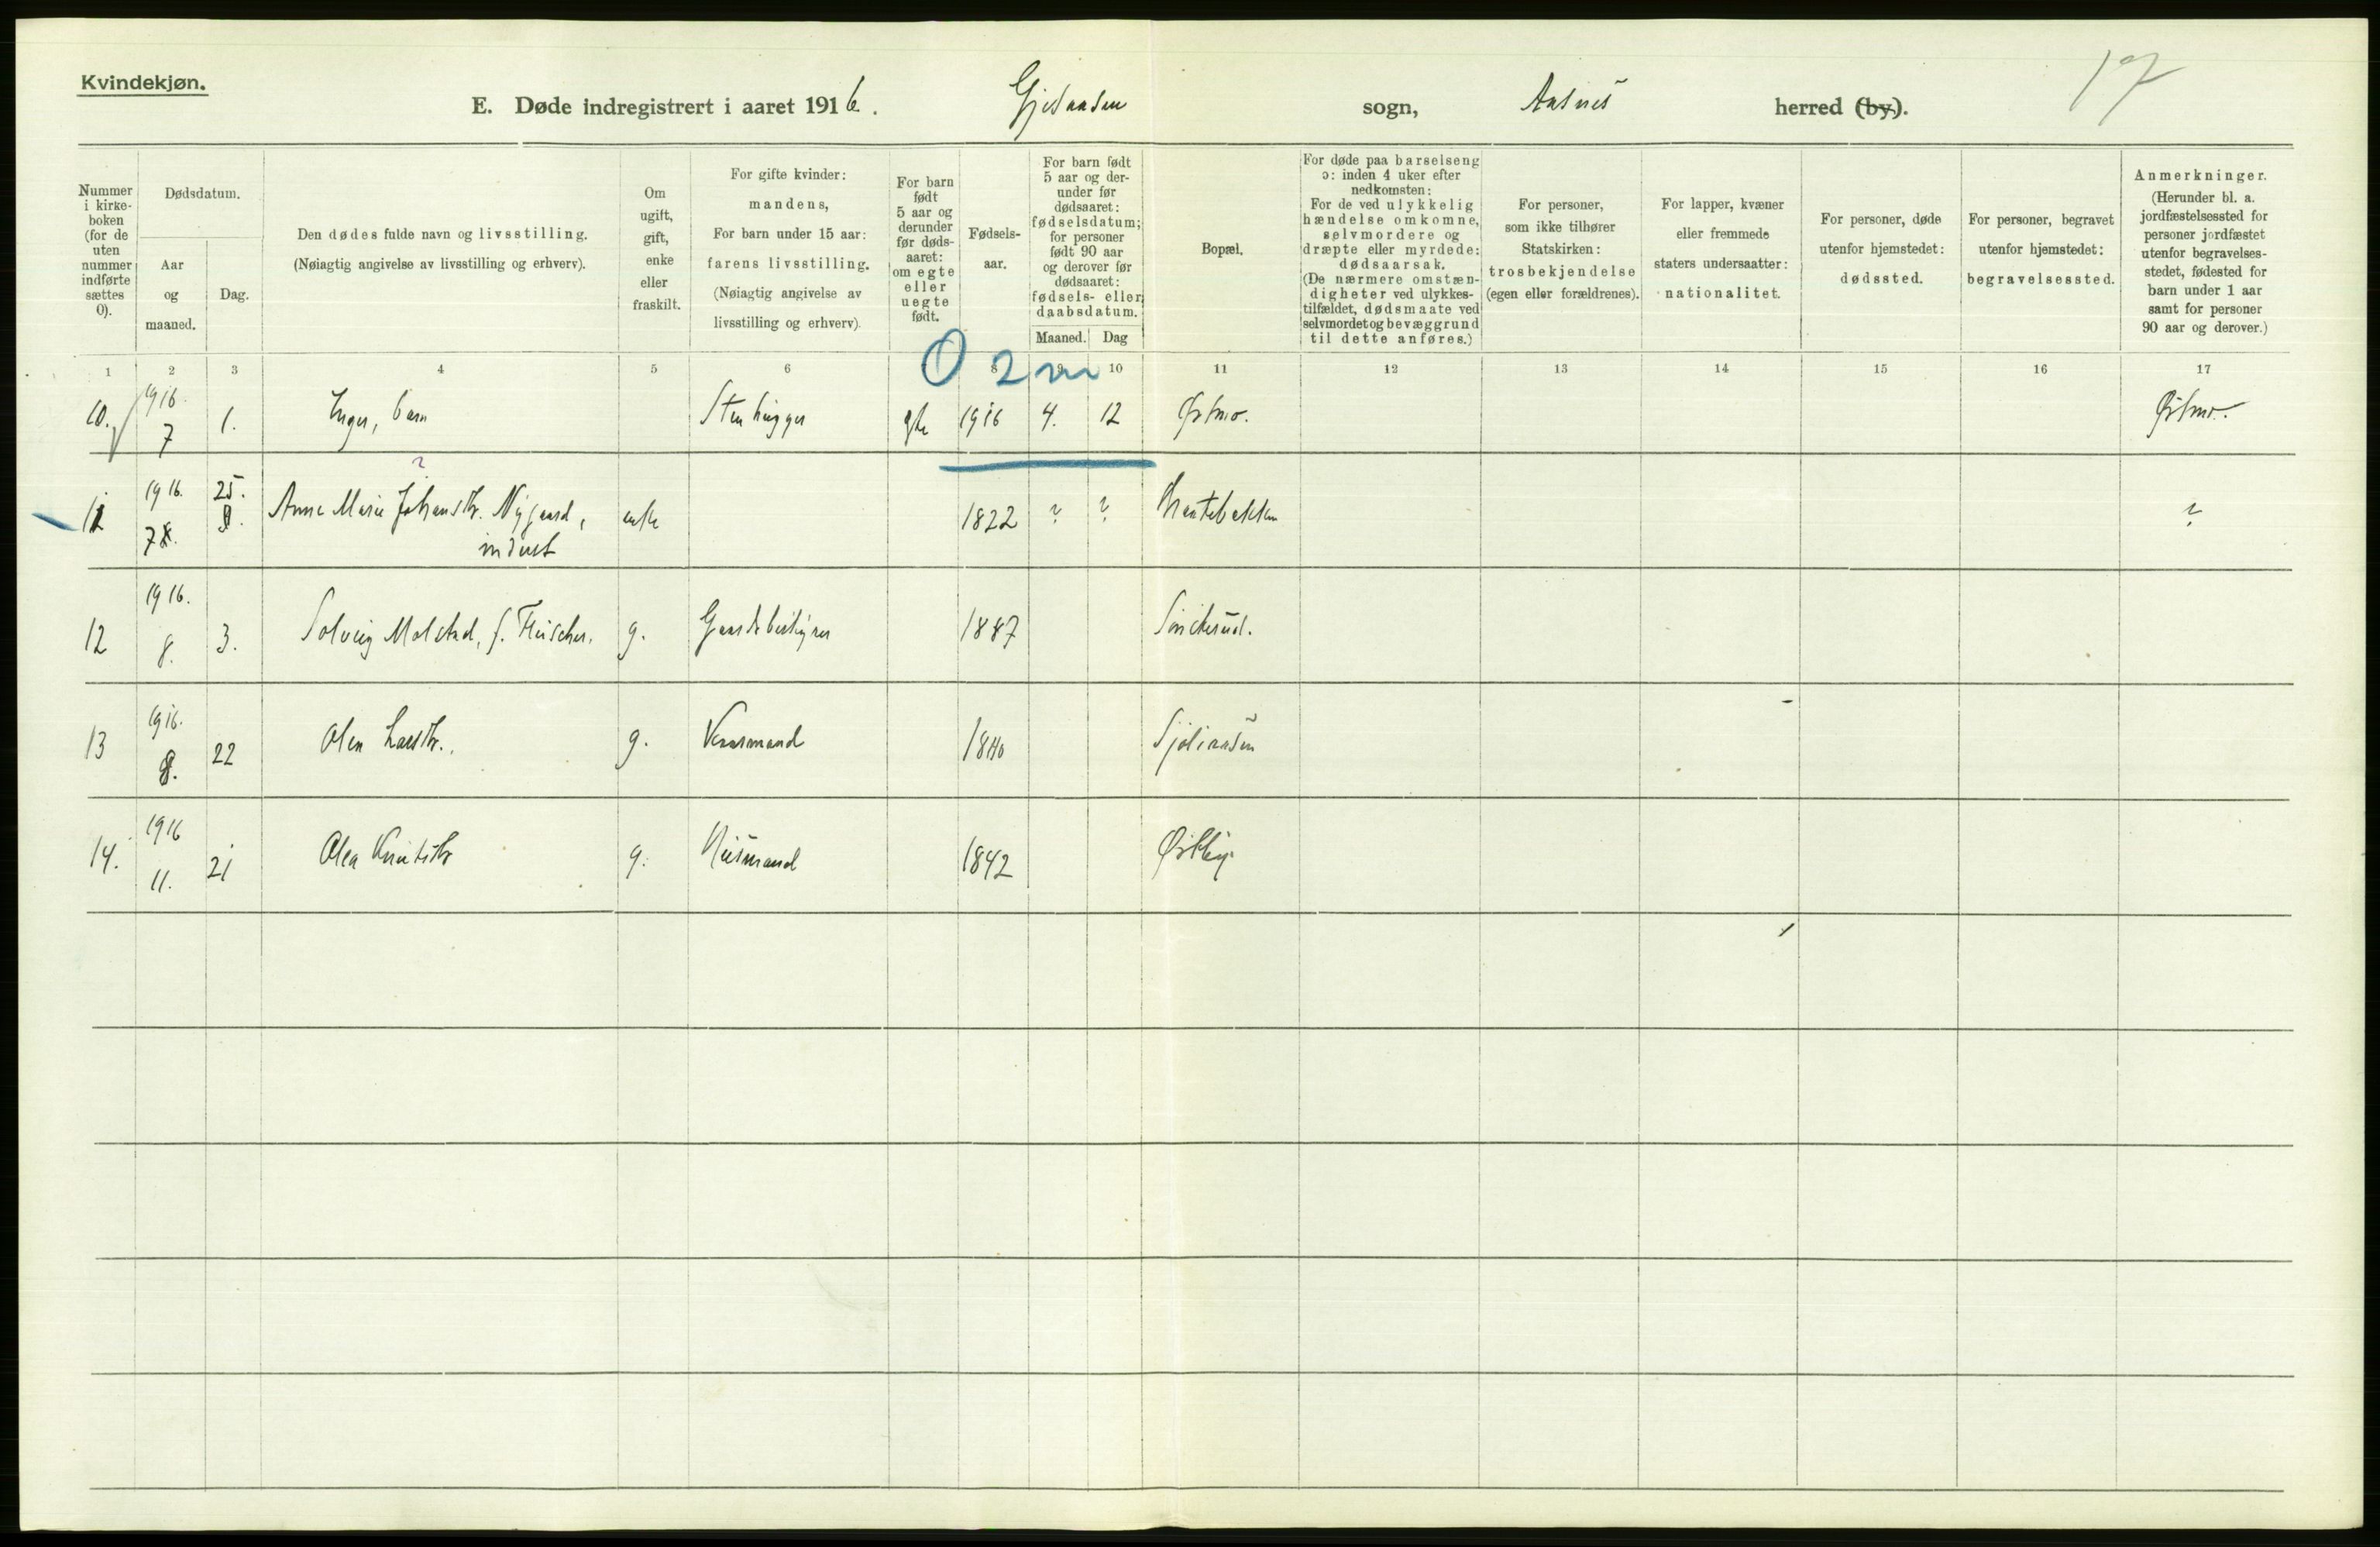 Kvindekjøn.
E. Døde indregistrert i aaret 1916. Gjesaasen sogn, Aasnes herred (by).
17
Nummer i kirke-boken (for de uten nummer indførte sættes 0).
Dødsdatum.
Aar og maaned.
Dag.
Den dødes fulde navn og livsstilling.
(Nøiagtig angivelse av livsstilling og erhverv).
Om ugift, gift, enke eller fraskilt.
For gifte kvinder:
mandens,
For barn under 15 aar:
farens livsstilling.
(Nøiagtig angivelse av
livsstilling og erhverv).
For barn født 5 aar og derunder før døds-aaret: om egte eller uegte født.
Fødsels-aar.
For barn født 5 aar og der-under før dødsaaret: fødselsdatum; for personer født 90 aar og derover før dødsaaret: fødsels- eller daabsdatum.
Maaned. Dag
Bopæl.
For døde paa barselseng ɔ: inden 4 uker efter nedkomsten:
For de ved ulykkelig hændelse omkomne, selvmordere og dræpte eller myrdede: dødsaarsak.
(De nærmere omstæn-digheter ved ulykkes-tilfældet, dødsmaate ved selvmordet og bevæggrund til dette anføres.)
For personer, som ikke tilhører Statskirken: trosbekjendelse (egen eller forældrenes).
For lapper, kvæner eller fremmede staters undersaatter: nationalitet.
For personer, døde utenfor hjemstedet: dødssted.
For personer, begravet utenfor hjemstedet: begravelsessted.
Anmerkninger.
(Herunder bl. a. jordfæstelsessted for personer jordfæstet utenfor begravelses-stedet, fødested for barn under 1 aar samt for personer 90 aar og derover.)
1 2 3 4 5 6 8 9 10 11 12 13 14 15 16 17
0 2 m
10. 1916. 7 1. Inger, barn Stenhugger egte 1916 4. 12 Østmo. Østmo.
?
11 1916. 7 25. Anne Marie Johansdtr. Nygaard, enke 1822 ? ? ?
inderst
12 1916. 8. 3. Solveig Molstad, f. Fleischer. g. Gaardsbestyrer 1887
13 1916. 8. 22 Olea Larsdtr. g. 1840 Sjøliaasen
14. 1916 11. 21 Olea Knutsdtr g. Husmand 1842 Østby